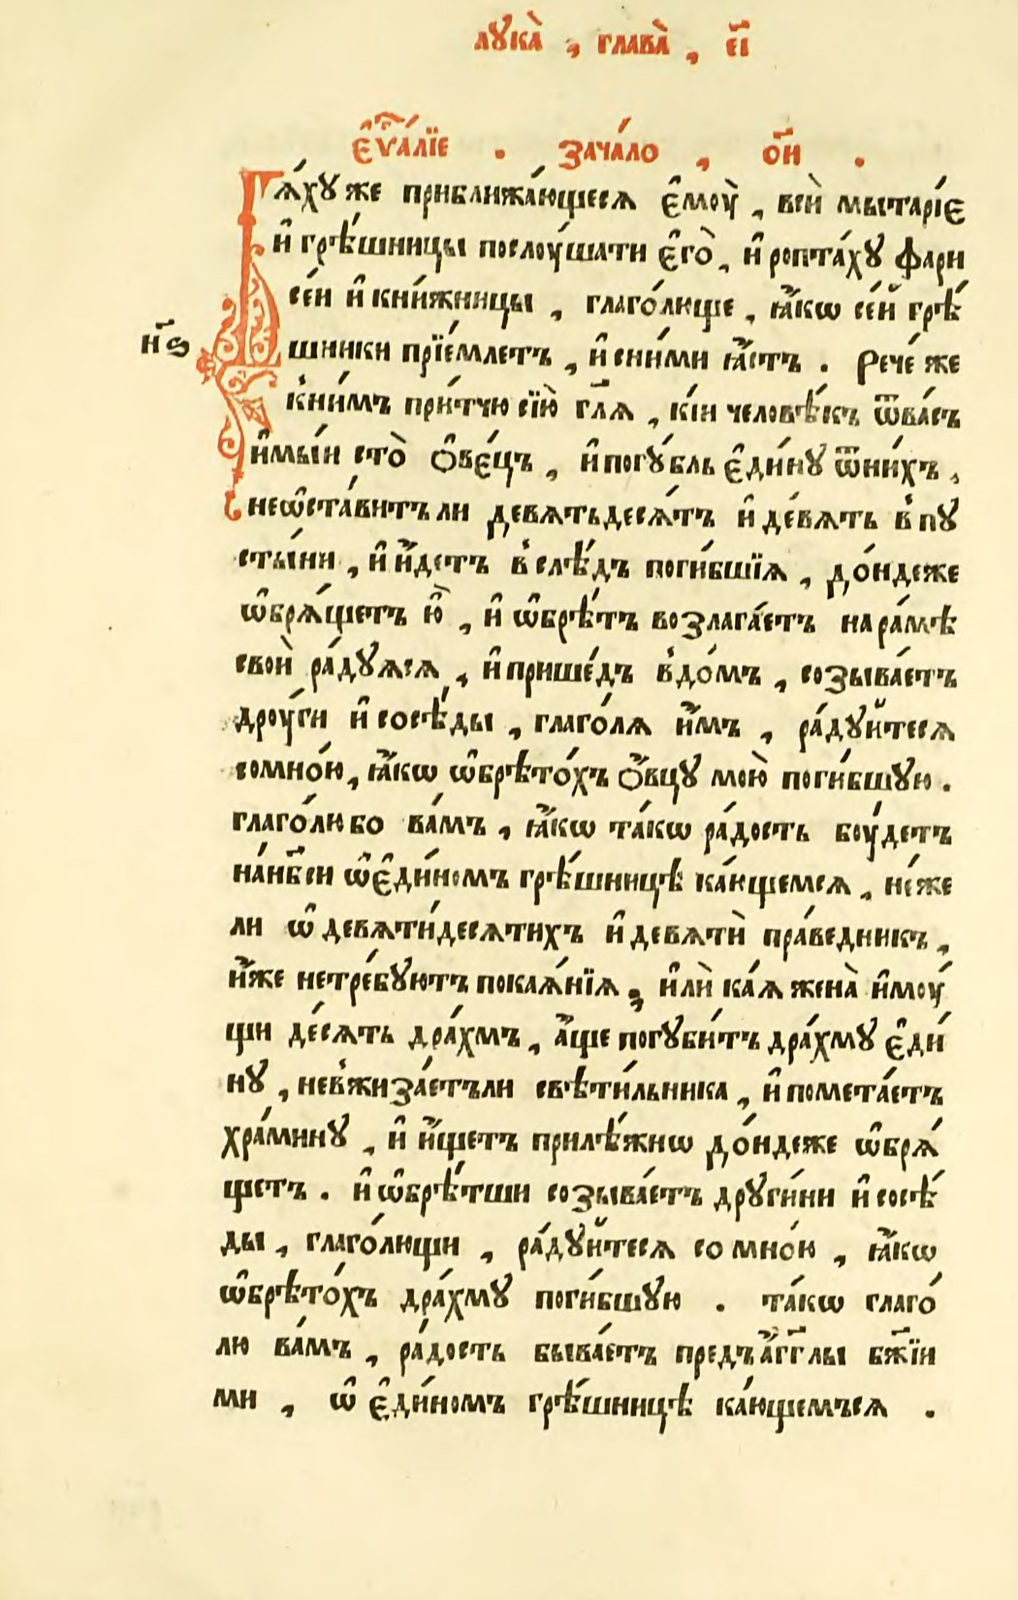 лꙋка̀ , глава̀ , є҃і
є҆ѵⷢ҇а́лїе . зача́ло , ѻ҃и .
Бѧ́хꙋ же приближа́ющесѧ є҆моу̀ , всѝ мытарі́є
и҆ грѣ́шницы послоу́шати є҆го̀ , и҆ ропта́хꙋ фари
се́и и҆ кни́жницы , глаго́люще , ꙗ҆́кѡ се́й грѣ́
н҃ѕ
шники прїе́млетъ , и҆ сни́ми ꙗ҆́стъ . Рече́ же
кни́мъ при́тчю сїю̀ гл҃ѧ , кі́и человѣ́къ ѿва́съ
и҆мы́и сто̀ ѻ҆ве́цъ , и҆ погꙋ́бль є҆ди́нꙋ ѿни́хъ ,
неѡ҆ста́витъ ли девѧтьдесѧ́тъ и҆ де́вѧть в пꙋ
сты́ни , и҆ и҆́детъ вслѣ́дъ поги́бшїѧ , до́ндеже
ѡ҆брѧ́щетъ ю҆̀ , и҆ ѡ҆брѣ́тъ возлага́етъ на ра́мѣ
своѝ ра́дꙋѧсѧ , и҆ прише́дъ вдо́мъ , созыва́етъ
дроу́ги и҆ сосѣ́ды , глаго́лѧ и҆̀мъ , ра́дꙋйтесѧ
сомно́ю , ꙗ҆́кѡ ѡ҆брѣто́хъ ѻ҆́вцꙋ мою̀ поги́бшꙋю .
глаго́лю бо ва́мъ , ꙗ҆́кѡ та́кѡ ра́дость боу́детъ
на́нб҃си ѡ҆ є҆ди́номъ грѣ́шницѣ ка́ющемсѧ , не́же
ли ѡ҆ девѧти́десѧтихъ и҆ девѧтѝ пра́ведникъ ,
и҆́же нетре́бꙋютъ покаѧ́нїѧ , и҆лѝ ка́ѧ жена̀ и҆моу́
щи де́сѧть дра́хмъ , а҆́ще погꙋби́тъ дра́хмꙋ є҆ди́
нꙋ , невжиза́етъли свѣти́льника , и҆ помета́етъ
хра́минꙋ , и҆ и҆́щетъ прилѣ́жнѡ до́ндеже ѡ҆брѧ́
щетъ . и҆ ѡ҆брѣ́тши созыва́етъ дрꙋги́ни и҆ сосѣ́
ды , глаго́лющи , ра́дꙋйтесѧ со мно́ю , ꙗ҆́кѡ
ѡ҆брѣто́хъ дра́хмꙋ поги́бшꙋю . та́кѡ глаго́
лю ва́мъ , ра́дость быва́етъ предъ а҆́гг҃лы бж҃їи
ми , ѡ҆ є҆ди́номъ грѣ́шницѣ ка́ющемъсѧ .